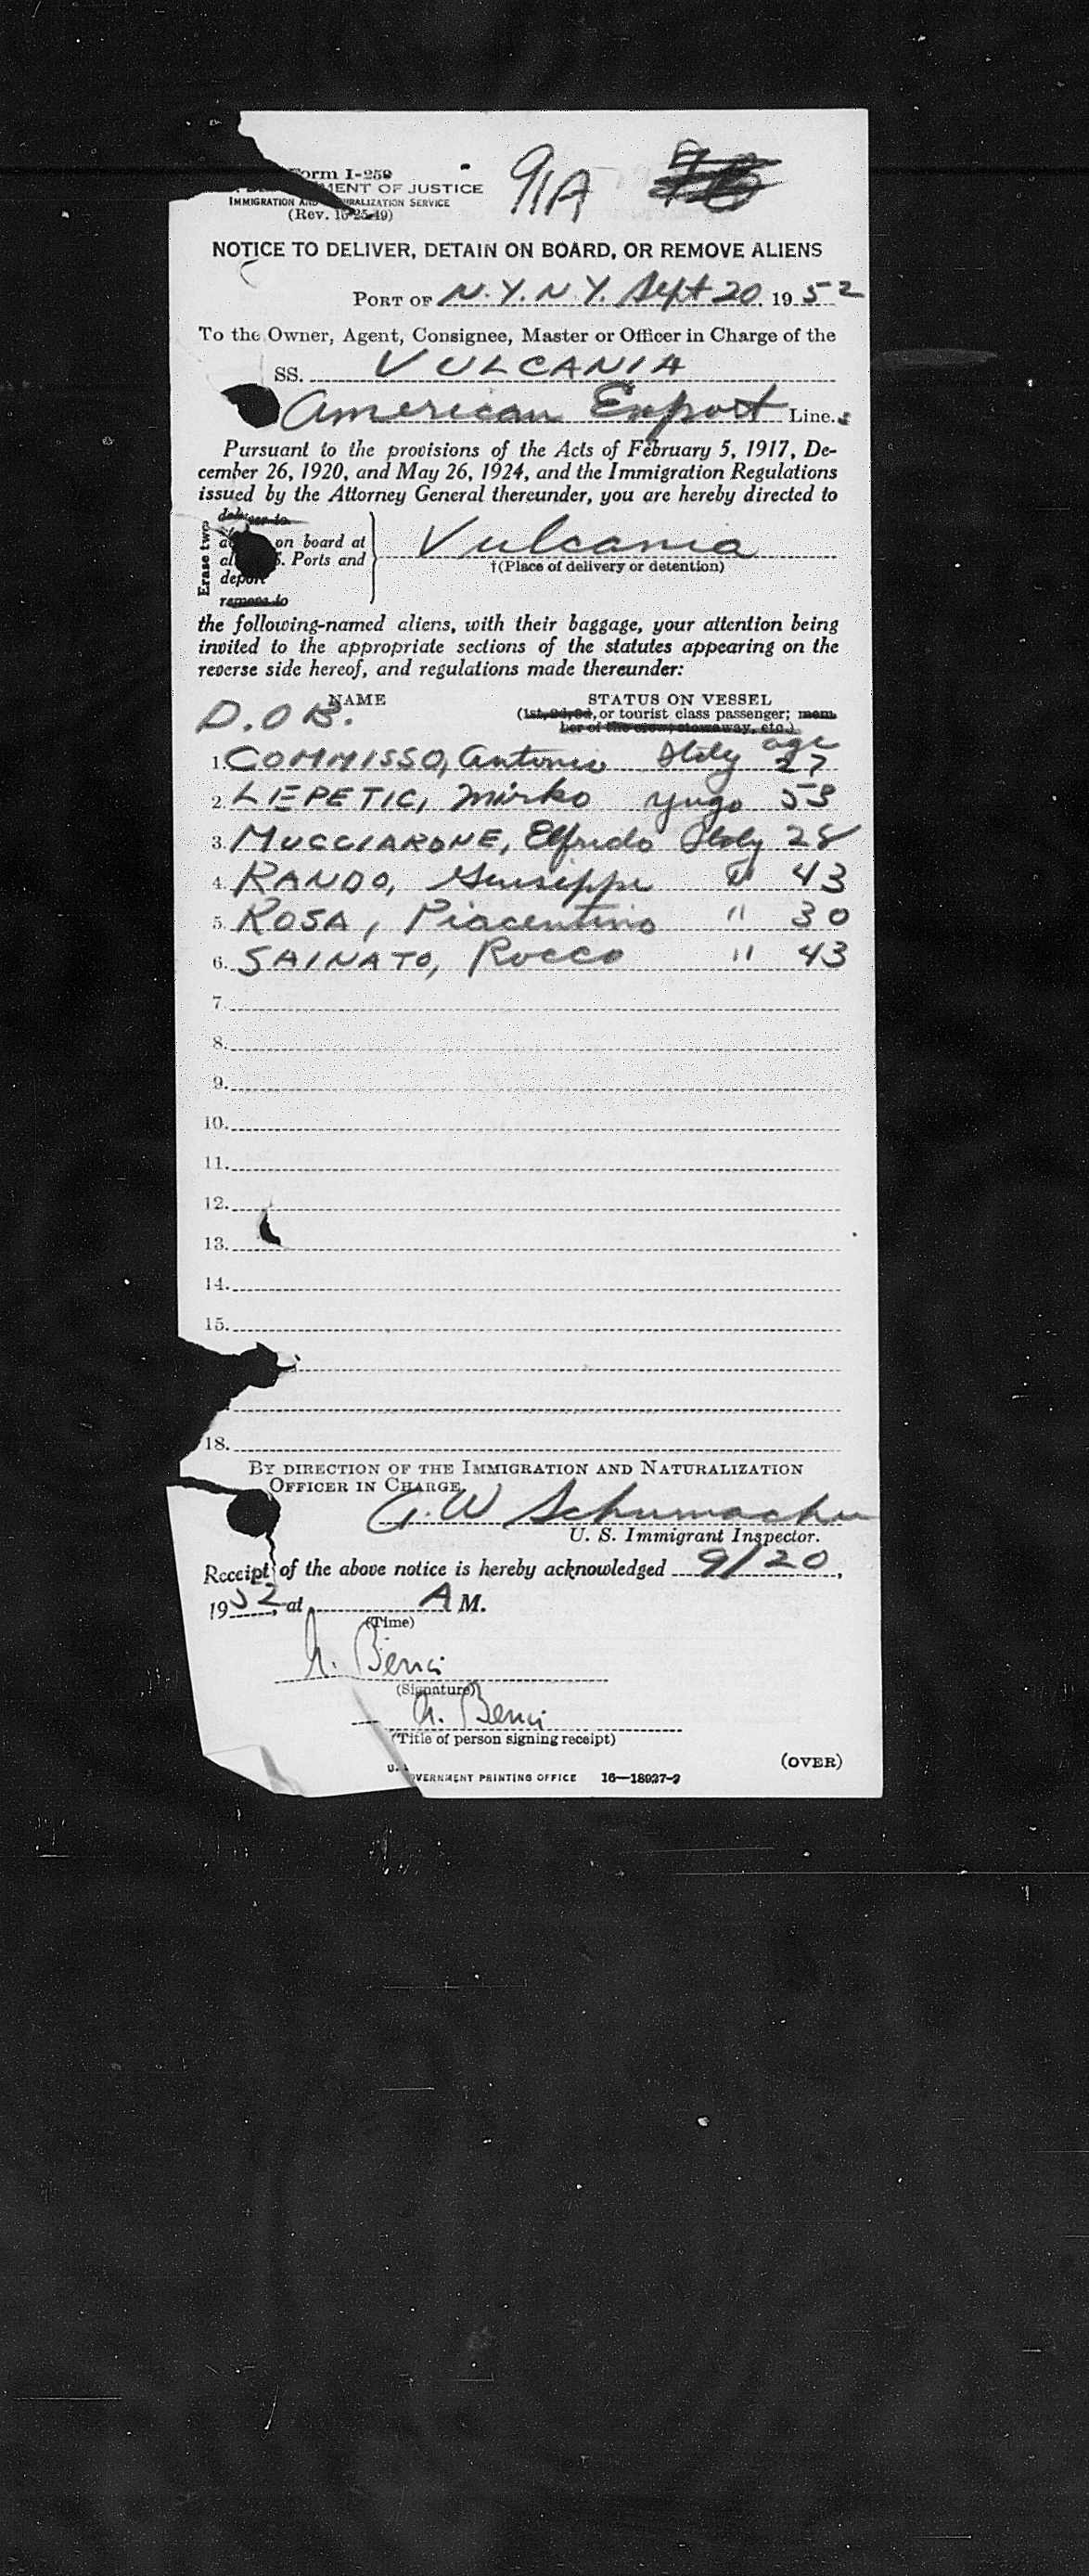 Form I-259 91A
MENT OF JUSTICE
IMMIGRATION AND NATURALIZATION SERVICE
(Rev. 10-25-49)
NOTICE TO DELIVER, DETAIN ON BOARD, OR REMOVE ALIENS
PORT OF N.Y. N.Y. Sept 20 1952
To the Owner, Agent, Consignee, Master or Officer in Charge of the
SS. VULCANIA
American Export Lines
Pursuant to the provisions of the Acts of February 5, 1917, De-
cember 26, 1920, and May 26, 1924, and the Immigration Regulations
issued by the Attorney General thereunder, you are hereby directed to
Erase two
deliver to
on board at Vulcania
Ports and †(Place of delivery or detention)
deport
remove to
the following-named aliens, with their baggage, your attention being
invited to the appropriate sections of the statutes appearing on the
reverse side hereof, and regulations made thereunder:
NAME STATUS ON VESSEL
D.O.B. (1st, 2d, 3d, or tourist class passenger; mem-
ber of the crew, stowaway, etc.)
age
1. COMMISSO, Antonio Italy 27
2. LEPETIC, Mirko Yugo 53
3. MUCCIARONE, Elfrido Italy 28
4. RANDO, Giuseppe " 43
5. ROSA, Piacentino " 30
6. SAINATO, Rocco " 43
7.
8.
9.
10.
11.
12.
13.
14.
15.
18.
BY DIRECTION OF THE IMMIGRATION AND NATURALIZATION
OFFICER IN CHARGE
G.W Schumacher
U. S. Immigrant Inspector.
Receipt of the above notice is hereby acknowledged 9/20,
1952, at A M.
(Time)
Benci
(Signature)
Benci
(Title of person signing receipt)
(OVER)
GOVERNMENT PRINTING OFFICE 16—18937-2